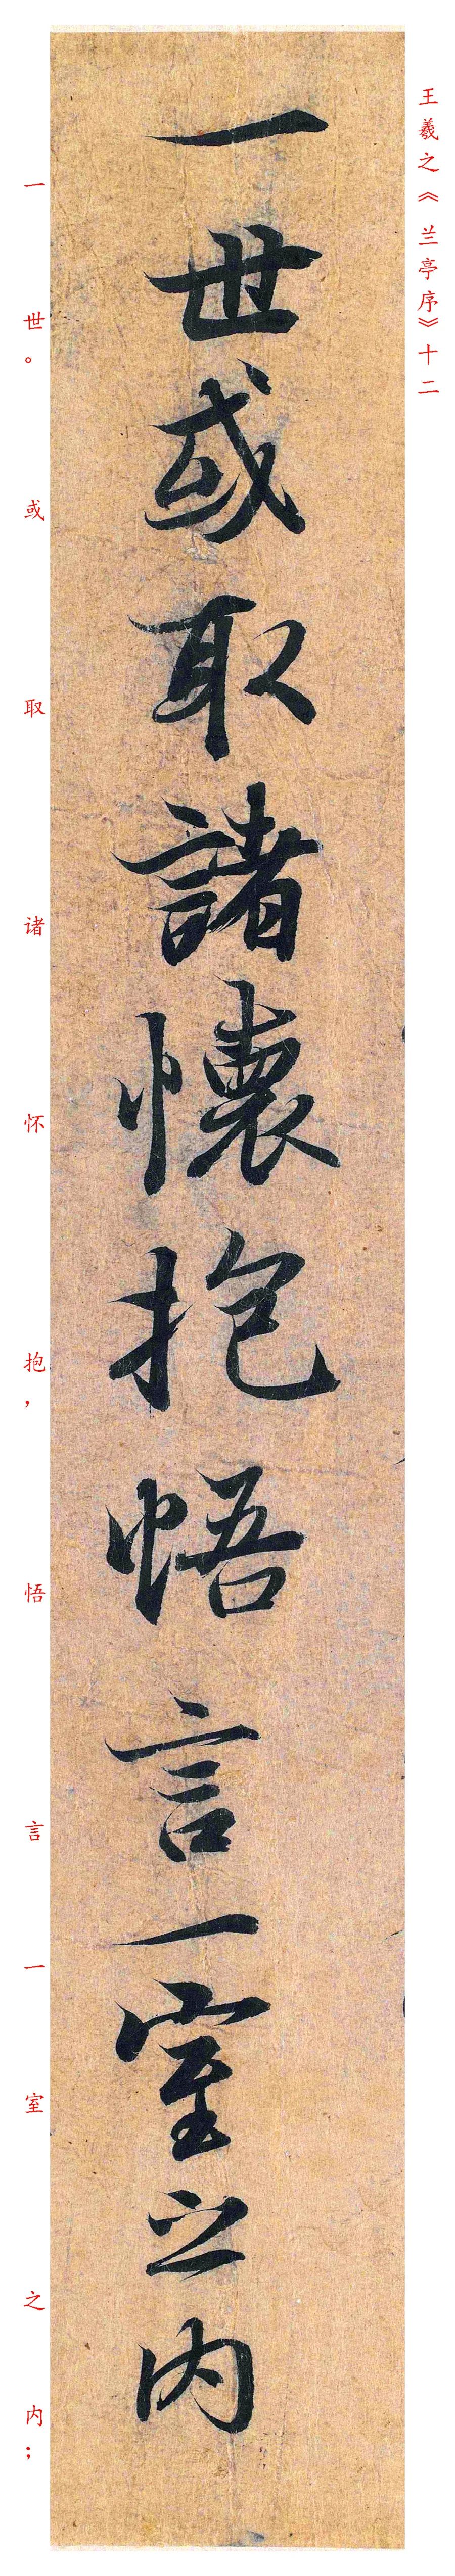 王羲之《兰亭序》十二
一世或取諸懷抱悟言一室之内
一世。或取诸怀抱，悟言一室之内；